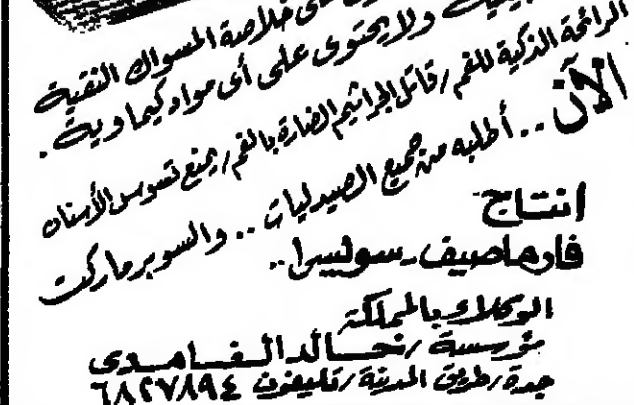 على خلاصة المسواك النقية
ولا يحتوى على أى مواد كيماوية .
الرائحة الذكية للفم / قاتل الجراثيم الضارة بالفم / يمنع تسوس الأسنان
الآن .. أطلبه من جميع الصيدليات .. والسوبر ماركت
انتاج
فارماصيف ـ سوليسرا ..
الوكلاء بالمملكة
مؤسسة / خالد الغامدى
جدة / طريق المدينة / تليفون ٦٨٢٧٨٩٤